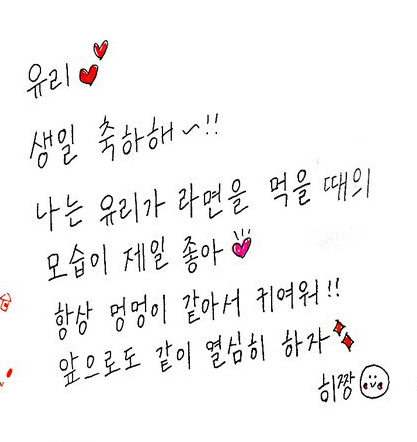 유리
생일 축하해~!!
나는 유리가 라면을 먹을 때의
모습이 제일 좋아
항상 멍멍이 같아서 귀여워!!
앞으로도 같이 열심히 하자
히짱